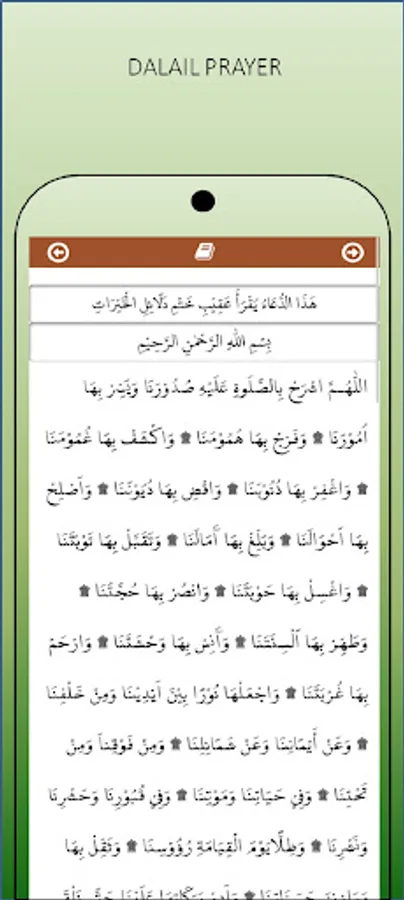 DALAIL PRAYER
هَذَا الدُّعَاءُ يُقْرَأُ عَقِيْبِ خَتْمِ دَلَائِلِ الْخَيْرَاتِ
بِسْمِ اللهِ الرَّحْمٰنِ الرَّحِيْمِ
اَللّٰهُمَّ اشْرَحْ بِالصَّلٰوةِ عَلَيْهِ صُدُوْرَنَا وَيَسِّرْ بِهَا
اُمُوْرَنَا ۞ وَفَرِّجْ بِهَا هُمُوْمَنَا ۞ وَاكْشِفْ بِهَا غُمُوْمَنَا
۞ وَاغْفِرْ بِهَا ذُنُوْبَنَا ۞ وَاقْضِ بِهَا دُيُوْنَنَا ۞ وَاَصْلِحْ
بِهَا اَحْوَالَنَا ۞ وَبَلِّغْ بِهَا اٰمَالَنَا ۞ وَتَقَبَّلْ بِهَا تَوْبَتَنَا
۞ وَاغْسِلْ بِهَا حَوْبَتَنَا ۞ وَانْصُرْ بِهَا حُجَّتَنَا ۞
وَطَهِّرْ بِهَا اَلْسِنَتَنَا ۞ وَاٰنِسْ بِهَا وَحْشَتَنَا ۞ وَارْحَمْ
بِهَا غُرْبَتَنَا ۞ وَاجْعَلْهَا نُوْرًا بَيْنَ اَيْدِيْنَا وَمِنْ خَلْفِنَا
۞ وَعَنْ أَيْمَانِنَا وَعَنْ شَمَائِلِنَا ۞ وَمِنْ فَوْقِنَا وَمِنْ
تَحْتِنَا ۞ وَفِي حَيَاتِنَا وَمَوْتِنَا ۞ وَفِي قُبُوْرِنَا وَحَشْرِنَا
وَنَشْرِنَا ۞ وَظِلًّا يَوْمَ الْقِيَامَةِ رُؤُوْسِنَا ۞ وَثَقِّلْ بِهَا